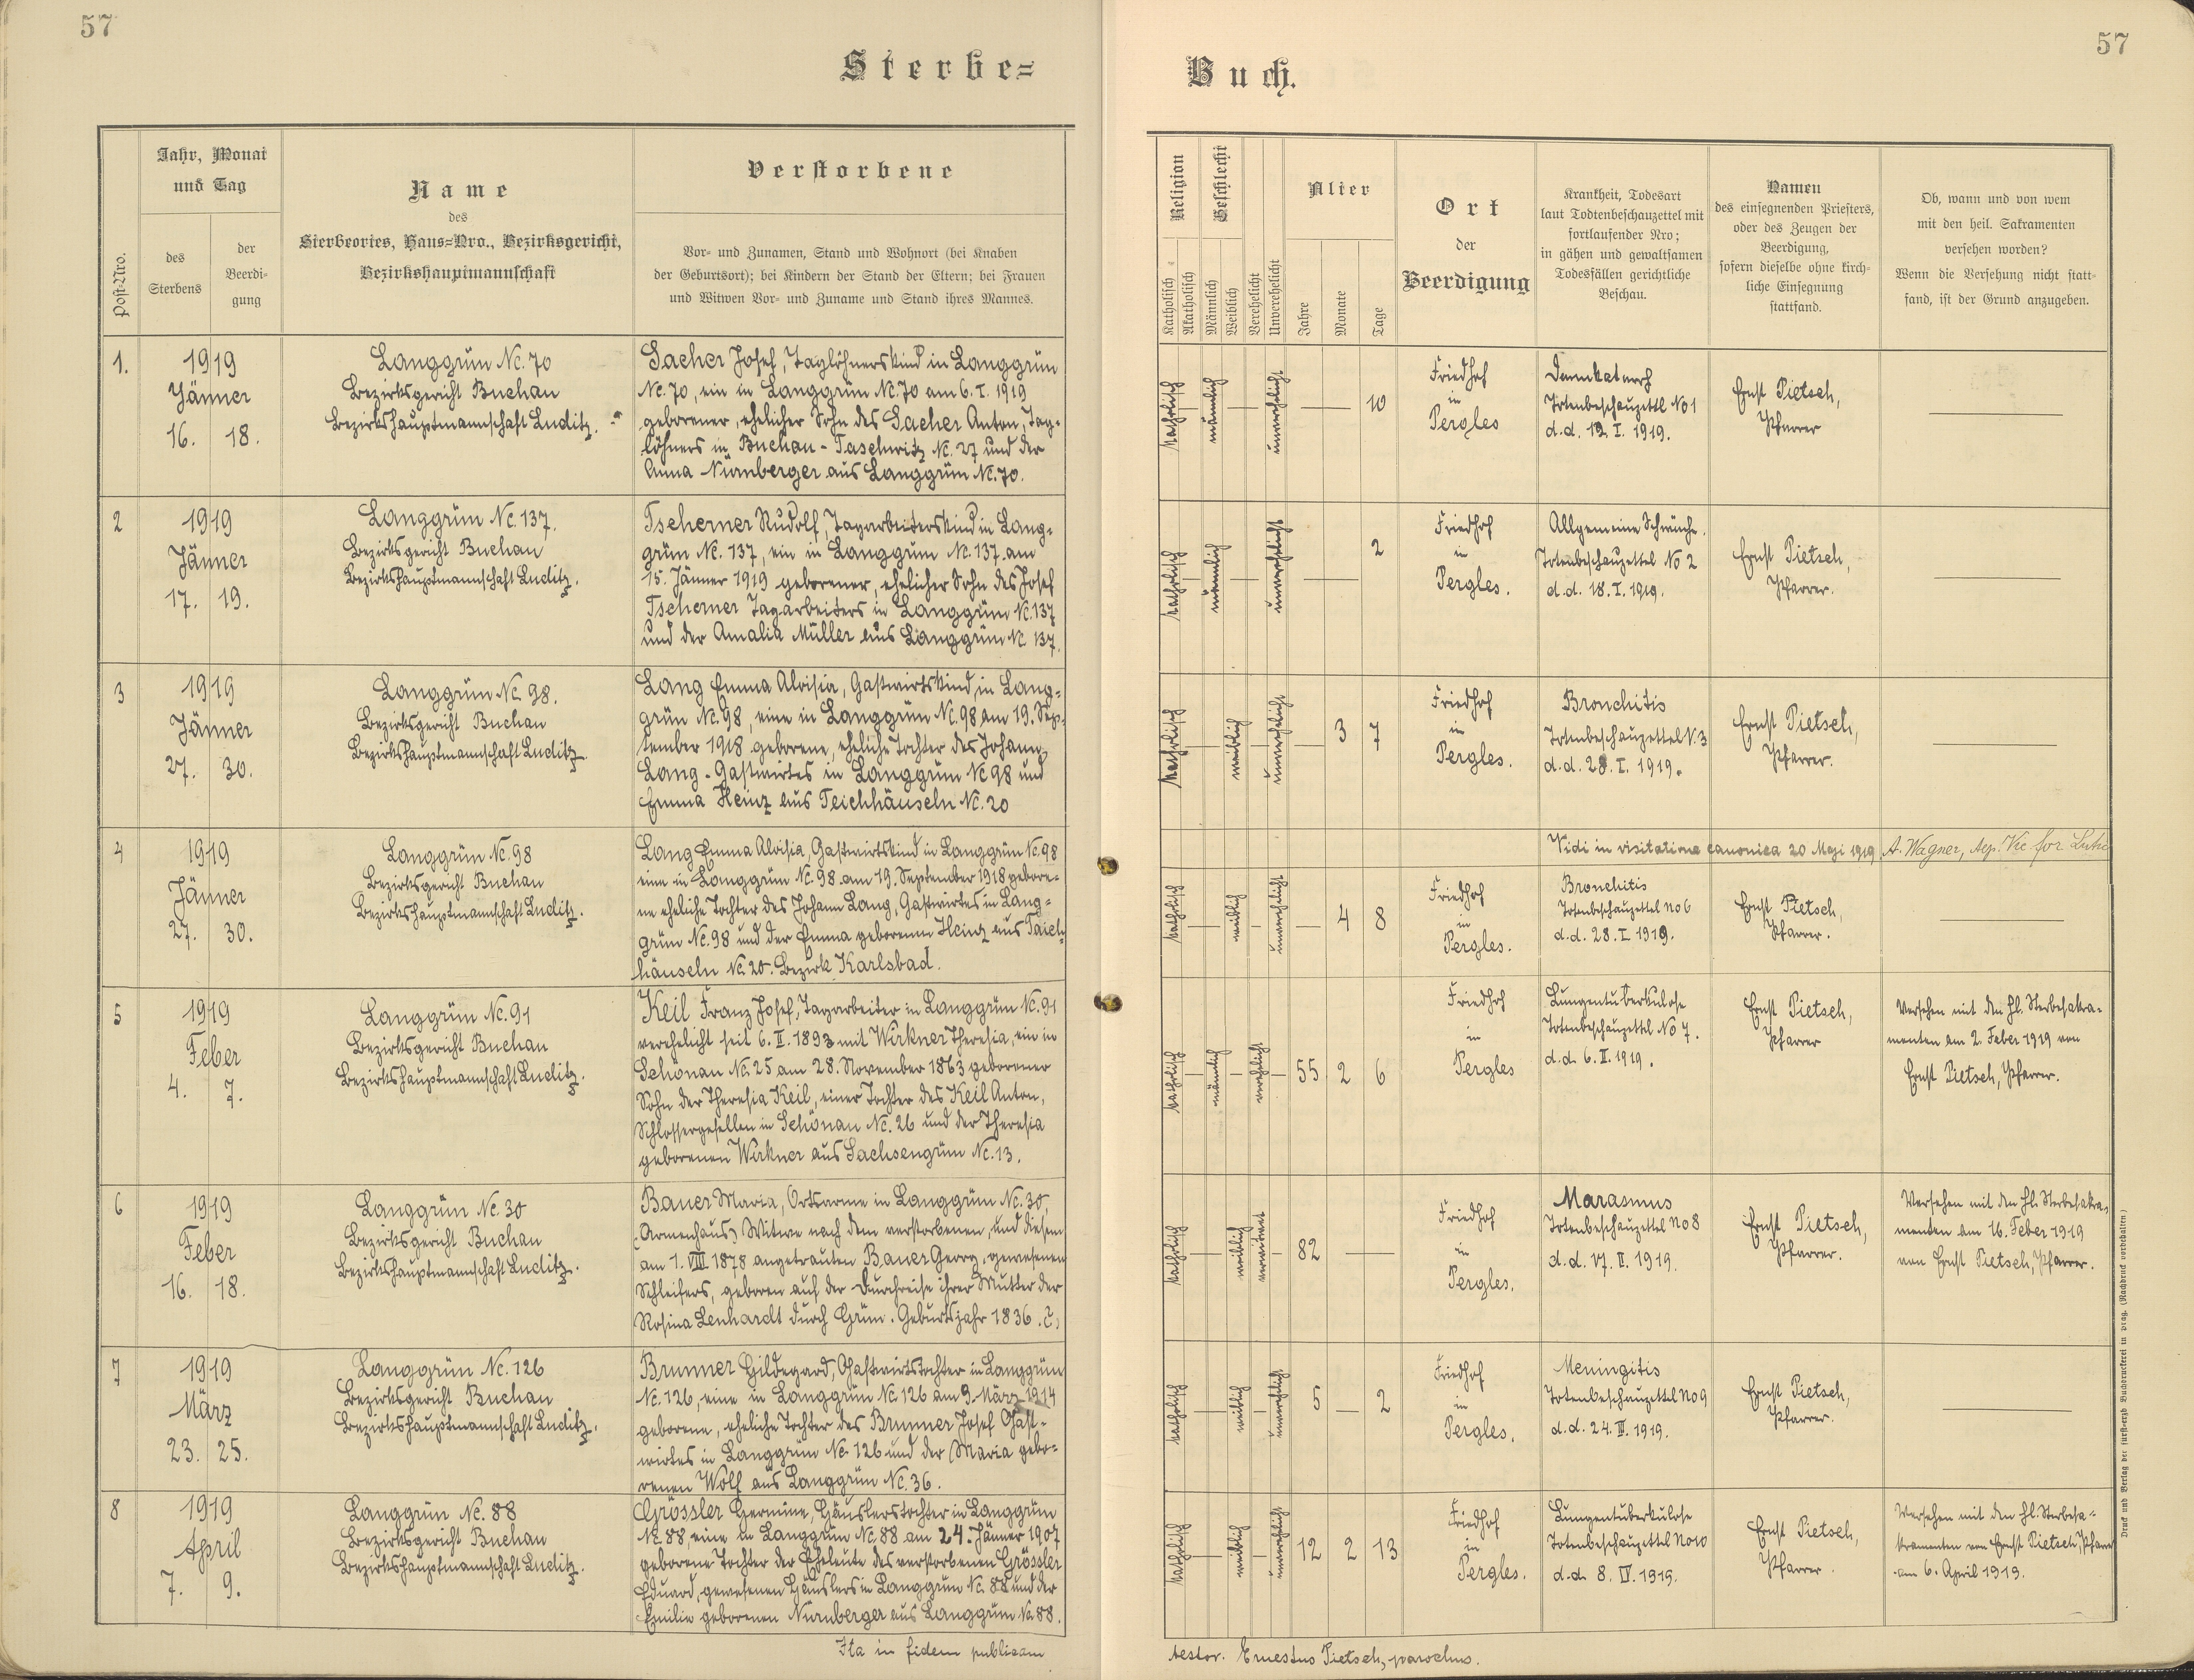 57
Sterbe=
Jahr, Monat
und Tag
Post-Nro.
des
Sterbens
der
Beerdi-
gung
Name
des
Sterbeortes, Haus=Nro., Bezirksgericht,
Bezirkshauptmannschaft
Verstorbene
Vor- und Zunamen, Stand und Wohnort (bei Knaben
der Geburtsort); bei Kindern der Stand der Eltern; bei Frauen
und Witwen Vor- und Zuname und Stand ihres Mannes.
1.
1919
Jänner
16. 18.
Langgrün Nc. 70
Bezirksgericht Buchau
Bezirkshauptmannschaft Luditz.
Sacher Josef, Taglöhnerskind in Langgrün
Nc. 70, ein in Langgrün Nc. 70 am 6. I. 1919
geborener, ehelicher Sohn des Sacher Anton, Tag-
löhners in Buchau - Taschwitz Nc. 27 und der
Anna Nürnberger aus Langgrün Nc. 70.
2
1919
Jänner
17. 19.
Langgrün Nc. 137.
Bezirksgericht Buchau
Bezirkshauptmannschaft Luditz.
Tscherner Rudolf, Tagarbeiterskind in Lang-
grün Nc. 137, ein in Langgrün Nc. 137 am
15. Jänner 1919 geborener, ehelicher Sohn des Josef
Tscherner Tagarbeiters in Langgrün Nc. 137
und der Amalia Müller aus Langgrün Nc. 137.
3
1919
Jänner
27. 30.
Langgrün Nc. 98.
Bezirksgericht Buchau
Bezirkshauptmannschaft Luditz.
Lang Emma Aloisia, Gastwirtskind in Lang-
grün Nc. 98, eine in Langgrün Nc. 98 am 19. Sep-
tember 1918 geborene, eheliche Tochter des Johann
Lang - Gastwirtes in Langgrün Nc 98 und
Emma Heinz aus Teichhäuseln Nc. 20
4
1919
Jänner
27. 30.
Langgrün Nc. 98
Bezirksgericht Buchau
Bezirkshauptmannschaft Luditz.
Lang Emma Aloisia, Gastwirtskind in Langgrün Nc. 98
eine in Langgrün Nc. 98 am 19. September 1918 gebore-
ne eheliche Tochter des Johann Lang, Gastwirtes in Lang-
grün Nc. 98 und der Emma geborenen Heinz aus Taich-
häuseln Nc. 20. Bezirk Karlsbad.
5
1919
Feber
4. 7.
Langgrün Nc. 91
Bezirksgericht Buchau
Bezirkshauptmannschaft Luditz.
Keil Franz Josef, Tagarbeiter in Langgrün Nc. 91
verehelicht seit 6. II. 1893 mit Wirkner Theresia, ein in
Schönau Nc. 25 am 28. November 1863 geborener
Sohn der Theresia Keil, einer Tochter des Keil Anton,
Schlossergesellen in Schönau Nc. 26 und der Theresia
geborenen Wirkner aus Sachsengrün Nc. 13.
6
1919
Feber
16. 18.
Langgrün Nc. 30
Bezirksgericht Buchau
Bezirkshauptmannschaft Luditz.
Bauer Maria, Ortsarme in Langgrün Nc. 30,
(Armenhaus) Witwe nach dem verstorbenen, und diesem
am 1. VIII 1878 angetrauten Bauer Georg, gewesenen
Schleifers, geboren auf der Durchreise ihrer Mutter der
Rosina Lenhardt durch Grün. Geburtsjahr 1836.
7
1919
März
23. 25.
Langgrün Nc. 126
Bezirksgericht Buchau
Bezirkshauptmannschaft Luditz.
Brunner Hildegard, Gastwirtstochter in Langgrün
Nc. 126, eine in Langgrün Nc. 126 am 9. März 1914
geborene, eheliche Tochter des Brunner Josef Gast-
wirtes in Langgrün Nc. 126 und der Maria gebo-
renen Wolf aus Langgrün Nc. 36.
8
1919
April
7. 9.
Langgrün Nc. 88
Bezirksgericht Buchau
Bezirkshauptmannschaft Luditz.
Grössler Hermine, Häuslerstochter in Langgrün
Nc. 88, eine in Langgrün Nc. 88 am 24. Jänner 1907
geborene Tochter der Eheleute des verstorbenen Grössler
Eduard, gewesenen Häuslers in Langgrün Nc. 88 und der
Emilie geborenen Nürnberger aus Langgrün Nc. 88.
Ita in fidem publicam
57
Buch.
Religion
Geschlecht
Katholisch
Akatholisch
Männlich
Weiblich
Verehelicht
Unverehelicht
Alter
Jahre
Monate
Tage
Ort
der
Beerdigung
Krankheit, Todesart
laut Todtenbeschauzettel mit
fortlaufender Nro;
in gähen und gewaltsamen
Todesfällen gerichtliche
Beschau.
Namen
des einsegnenden Priesters,
oder des Zeugen der
Beerdigung,
sofern dieselbe ohne kirch-
liche Einsegnung
stattfand.
Ob, wann und von wem
mit den heil. Sakramenten
versehen worden?
Wenn die Versehung nicht statt-
fand, ist der Grund anzugeben.
katholisch
männlich
unverehelicht
10
Friedhof
in
Pergles
Darmkatarrh
Totenbeschauzettl No 1
d.d. 19. I. 1919.
Ernst Pietsch,
Pfarrer
katholisch
männlich
unverehelicht
2
Friedhof
in
Pergles.
Allgemeine Schwäche.
Totenbeschauzettel No 2
d.d. 18. I. 1919.
Ernst Pietsch,
Pfarrer.
katholisch
weiblich
unverehelicht
3 7
Friedhof
in
Pergles.
Bronchitis
Totenbeschauzettel N. 3
d.d. 28. I. 1919.
Ernst Pietsch,
Pfarrer.
Vidi in visitatione canonica 20 Maji 1919 A. Wagner,
katholisch
weiblich
unverehelicht
4 8
Friedhof
in
Pergles.
Bronchitis
Totenbeschauzettel No 6
d.d. 28. I 1919.
Ernst Pietsch,
Pfarrer.
katholisch
männlich
verehelicht
55 2 6
Friedhof
in
Pergles
Lungentuberkulose
Totenbeschauzettel No 7.
d.d. 6. II. 1919.
Ernst Pietsch,
Pfarrer
Versehen mit den hl. Sterbesakra-
menten am 2. Feber 1919 von
Ernst Pietsch, Pfarrer.
katholisch
weiblich
verwitwet
82
Friedhof
in
Pergles.
Marasmus
Totenbeschauzettel No 8
d.d. 17. II. 1919.
Ernst Pietsch,
Pfarrer.
Versehen mit den hl. Sterbesakra-
menten am 16. Feber 1919
von Ernst Pietsch, Pfarrer.
katholisch
weiblich
unverehelicht
5 2
Friedhof
in
Pergles.
Meningitis
Totenbeschauzettel No 9
d.d. 24. III. 1919.
Ernst Pietsch,
Pfarrer.
katholisch
weiblich
unverehelicht
12 2 13
Friedhof
in
Pergles.
Lungentuberkulose
Totenbeschauzettel No 10
d.d. 8. IV. 1919.
Ernst Pietsch,
Pfarrer.
Versehen mit den hl. Sterbesa-
kramenten von Ernst Pietsch, Pfarrer
am 6. April 1919.
testor. Ernestus Pietsch, parochus.
Druck und Verlag der fürst-erzb Buchdruckerei in Prag. (Nachdruck vorbehalten.)